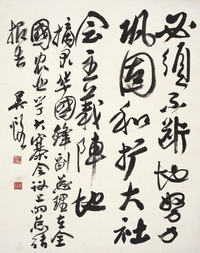 必須不断地努力
巩固和扩大社
会主义陣地
摘录华國锋副总理在全
國农业学大寨会议上的总结
报告